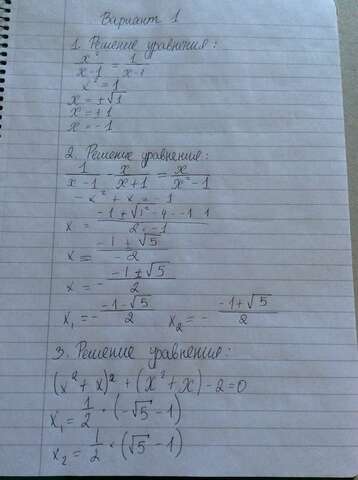 Вариант 1
1. Решение уравнения:
x²/(x-1) = 1/(x-1)
x² = 1
x = ±√1
x = ±1
x = -1
2. Решение уравнения:
1/(x-1) - x/(x+1) = x/(x²-1)
-x² + x = -1
x = (-1±√(1²-4·-1·1))/(2·-1)
x = (-1±√5)/(-2)
x = -(-1±√5)/2
x₁ = -(-1-√5)/2 x₂ = -(-1+√5)/2
3. Решение уравнения:
(x²+x)² + (x²+x) - 2 = 0
x₁ = 1/2 · (-√5 - 1)
x₂ = 1/2 · (√5 - 1)